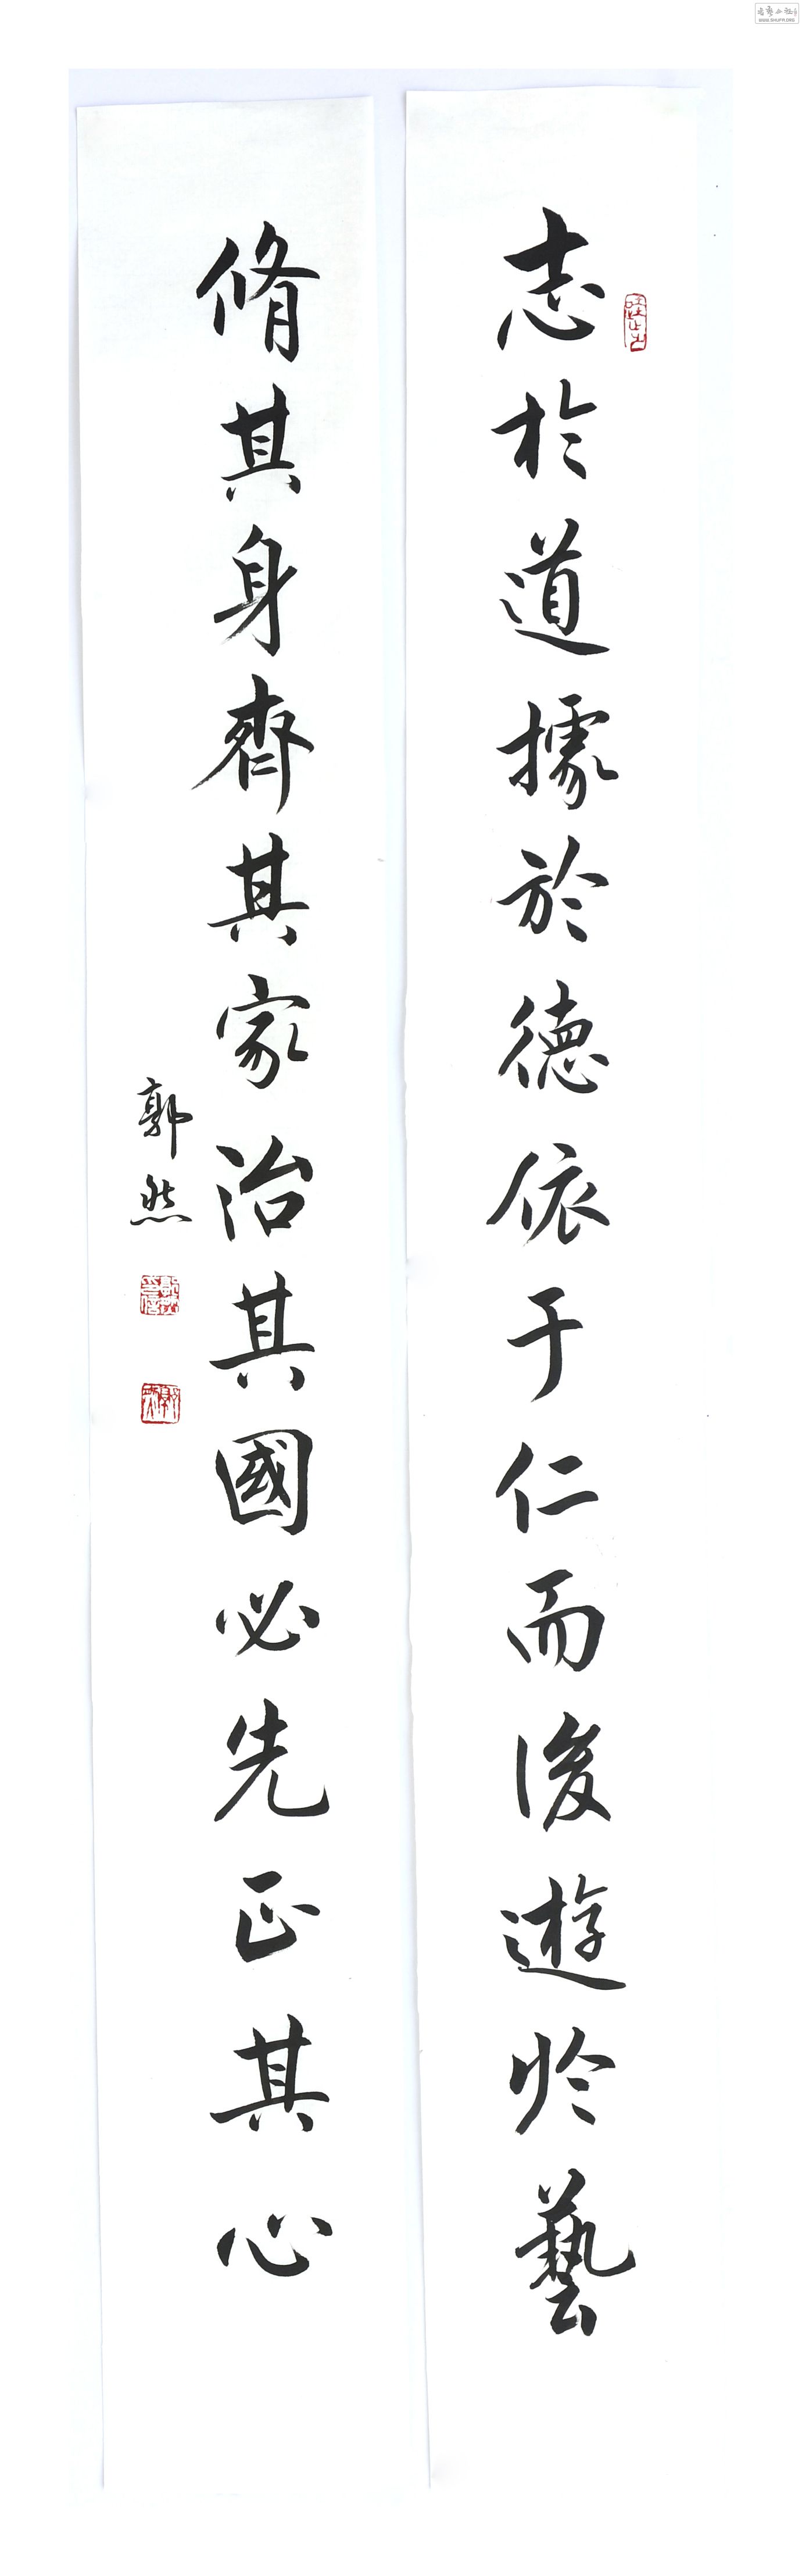 志於道據於德依于仁而後遊於藝
脩其身齊其家治其國必先正其心
郭然
WWW.SHUFR.ORG